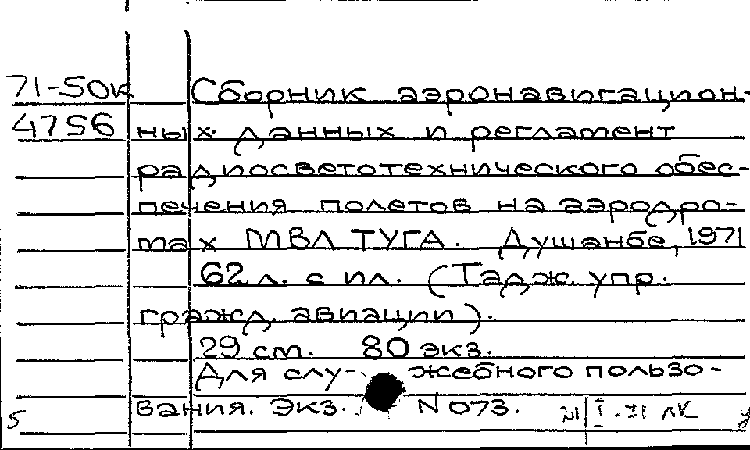 71-50к Сборник аэронавигацион-
4756 ных данных и регламент
радиосветотехнического обес-
печения полетов на аэродро-
мах МВЛ ТУГА. Душанбе, 1971
62 л. с ил. (Тадж. упр.
гражд. авиации).
29 см. 80 экз.
Для слу- жебного пользо-
вания. Экз. N 073.
5